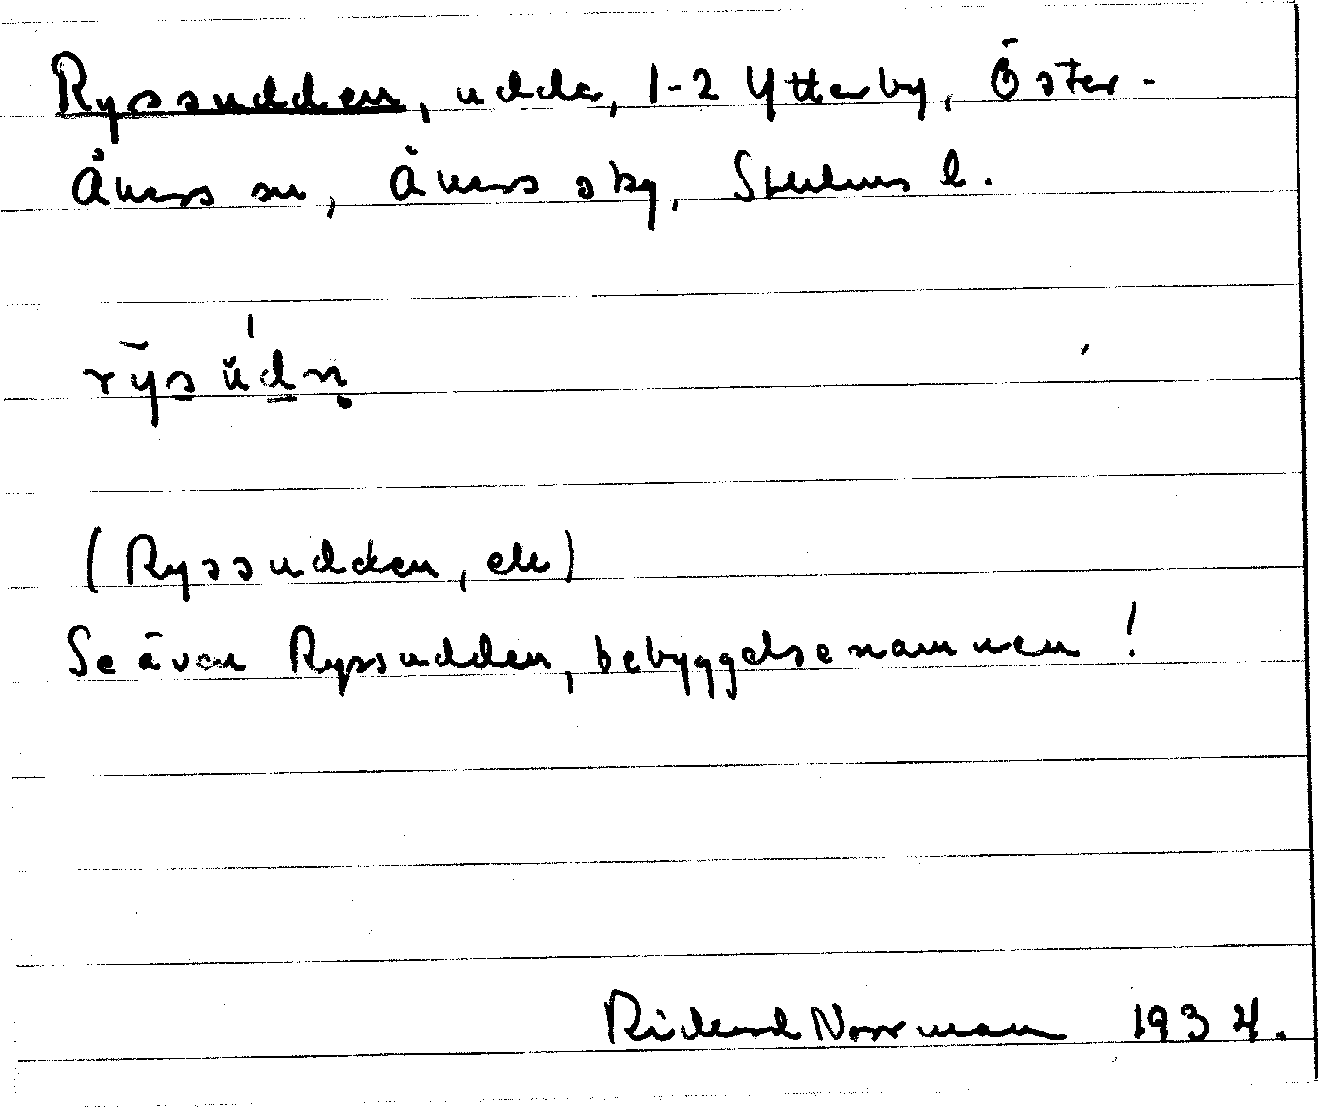 Ryssudden, udde, 1-2 Ytterby, Öster-
Åkers sn, Åkers skg, Sthlms l.
rȳsŭdn̥
(Ryssudden, ek)
Se även Ryssudden, bebyggelsenamnen!
Rickard Norrman 1934.